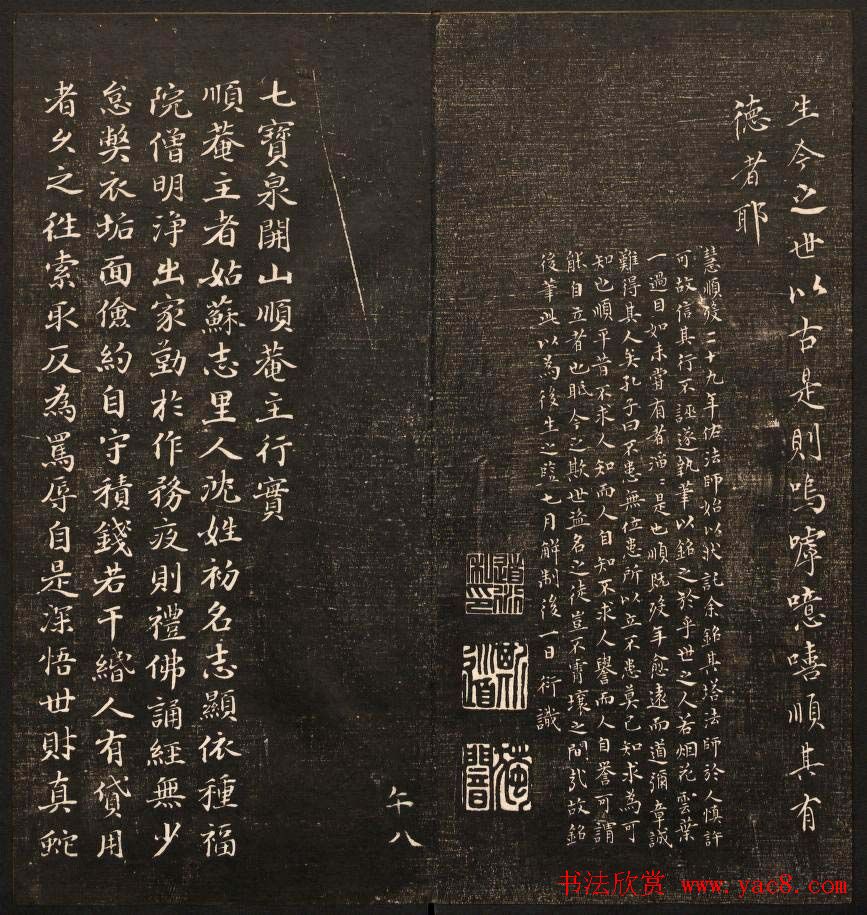 生今之世以古是則嗚嘑噫嘻順其有
德者耶
慧順歿二十九年佑法師始以狀記余銘其塔法師於人慎許
可故信其行不誣遂執筆以銘之於乎世之人若烟花雲葉
一過目如未嘗有者滔滔是也順既歿年愈遠而道彌章誠
難得其人矣孔子曰不患無位患所以立不患莫己知求為可
知也順平昔不求人知而人自知不求人譽而人自譽可謂
能自立者也眡今之欺世盜名之徒豈不霄壤之間哉故銘
後筆此以為後生之監七月解制後一日衍識
午八
七寶泉開山順菴主行實
順菴主者姑蘇志里人沈姓初名志顯依種福
院僧明淨出家勤於作務夜則禮佛誦經無少
怠獘衣垢面儉約自守積錢若干緡人有貸用
者久之徃索取反為罵辱自是深悟世財真蛇
书法欣赏 www.yac8.com